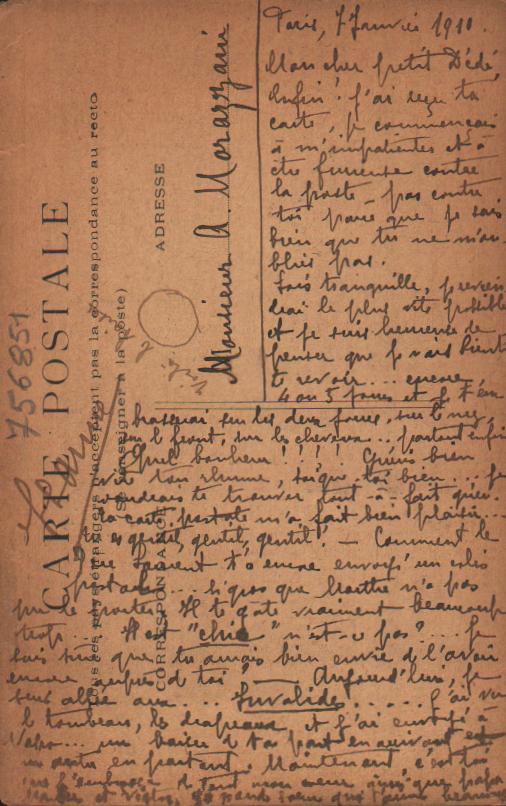 Paris, 7 Janvier 1910.
Mon cher petit Dédé,
Enfin ! j'ai reçu ta
carte, je commençais
à m'impatienter et à
être furieuse contre
la poste - pas contre
toi parce que je sais
bien que tu ne m'ou-
blies pas.
Sois tranquille, je revien
drai le plus vite possible
et je suis heureuse de
penser que je vais bientôt
te revoir ... encore
4 ou 5 jours et je t'em
brasserai sur les deux joues, sur le nez,
sur le front, sur les cheveux ... partout enfin
Quel bonheur !!!! Guéris bien
vite ton rhume, soigne-toi bien ... je
voudrais te trouver tout-à-fait guéri.
Ta carte postale m'a fait bien plaisir...
tu es gentil, gentil, gentil ! - Comment le
t'a encore envoyé un colis
postal ... que Marthe n'a pas
pu te porter. Il te gâte vraiment beaucoup
trop ... Il est "chic" n'est-ce pas ? ... Je
suis sûre que tu aurais bien envie de l'avoir
encore auprès de toi - Aujourd'hui, je
suis allée aux ... Invalides ... j'ai vu
le tombeau, les drapeaux et j'ai envoyé à
un baiser de ta part en arrivant et
un autre en partant. Maintenant, c'est toi
que j'embrasse de tout mon cœur ainsi que papa
CARTE POSTALE
Tous les pays étrangers n'acceptent pas la correspondance au recto
(Se renseigner à la poste)
CORRESPONDANCE
ADRESSE
Monsieur A. Morazzani
756851